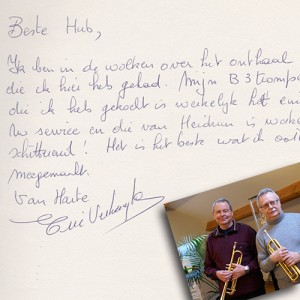 Beste Hub,
Ik ben in de wolken over het onthaal
die ik hier heb gehad. Mijn B3 trompe
die ik heb gekocht is werkelijk het
Uw service en die van Heidrun is
schitterend! Het is het beste wat ik ooit
meegemaakt.
Van Harte